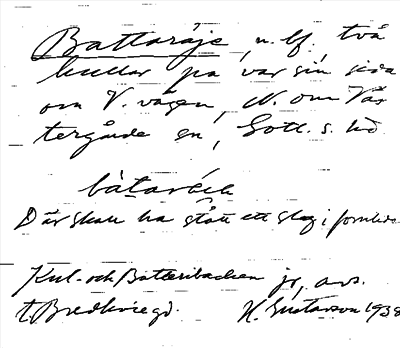 Battaröjs, n. lf., två
kullar på var sin sida
om V. vägen, N. om Väs
tergårde en, Gotl. s. hd
Där skall ha stått ett slag i forntiden
Kul- och Batteribacken jfr, avs.
t. Bredkvie gd. H. Gustavson 1938